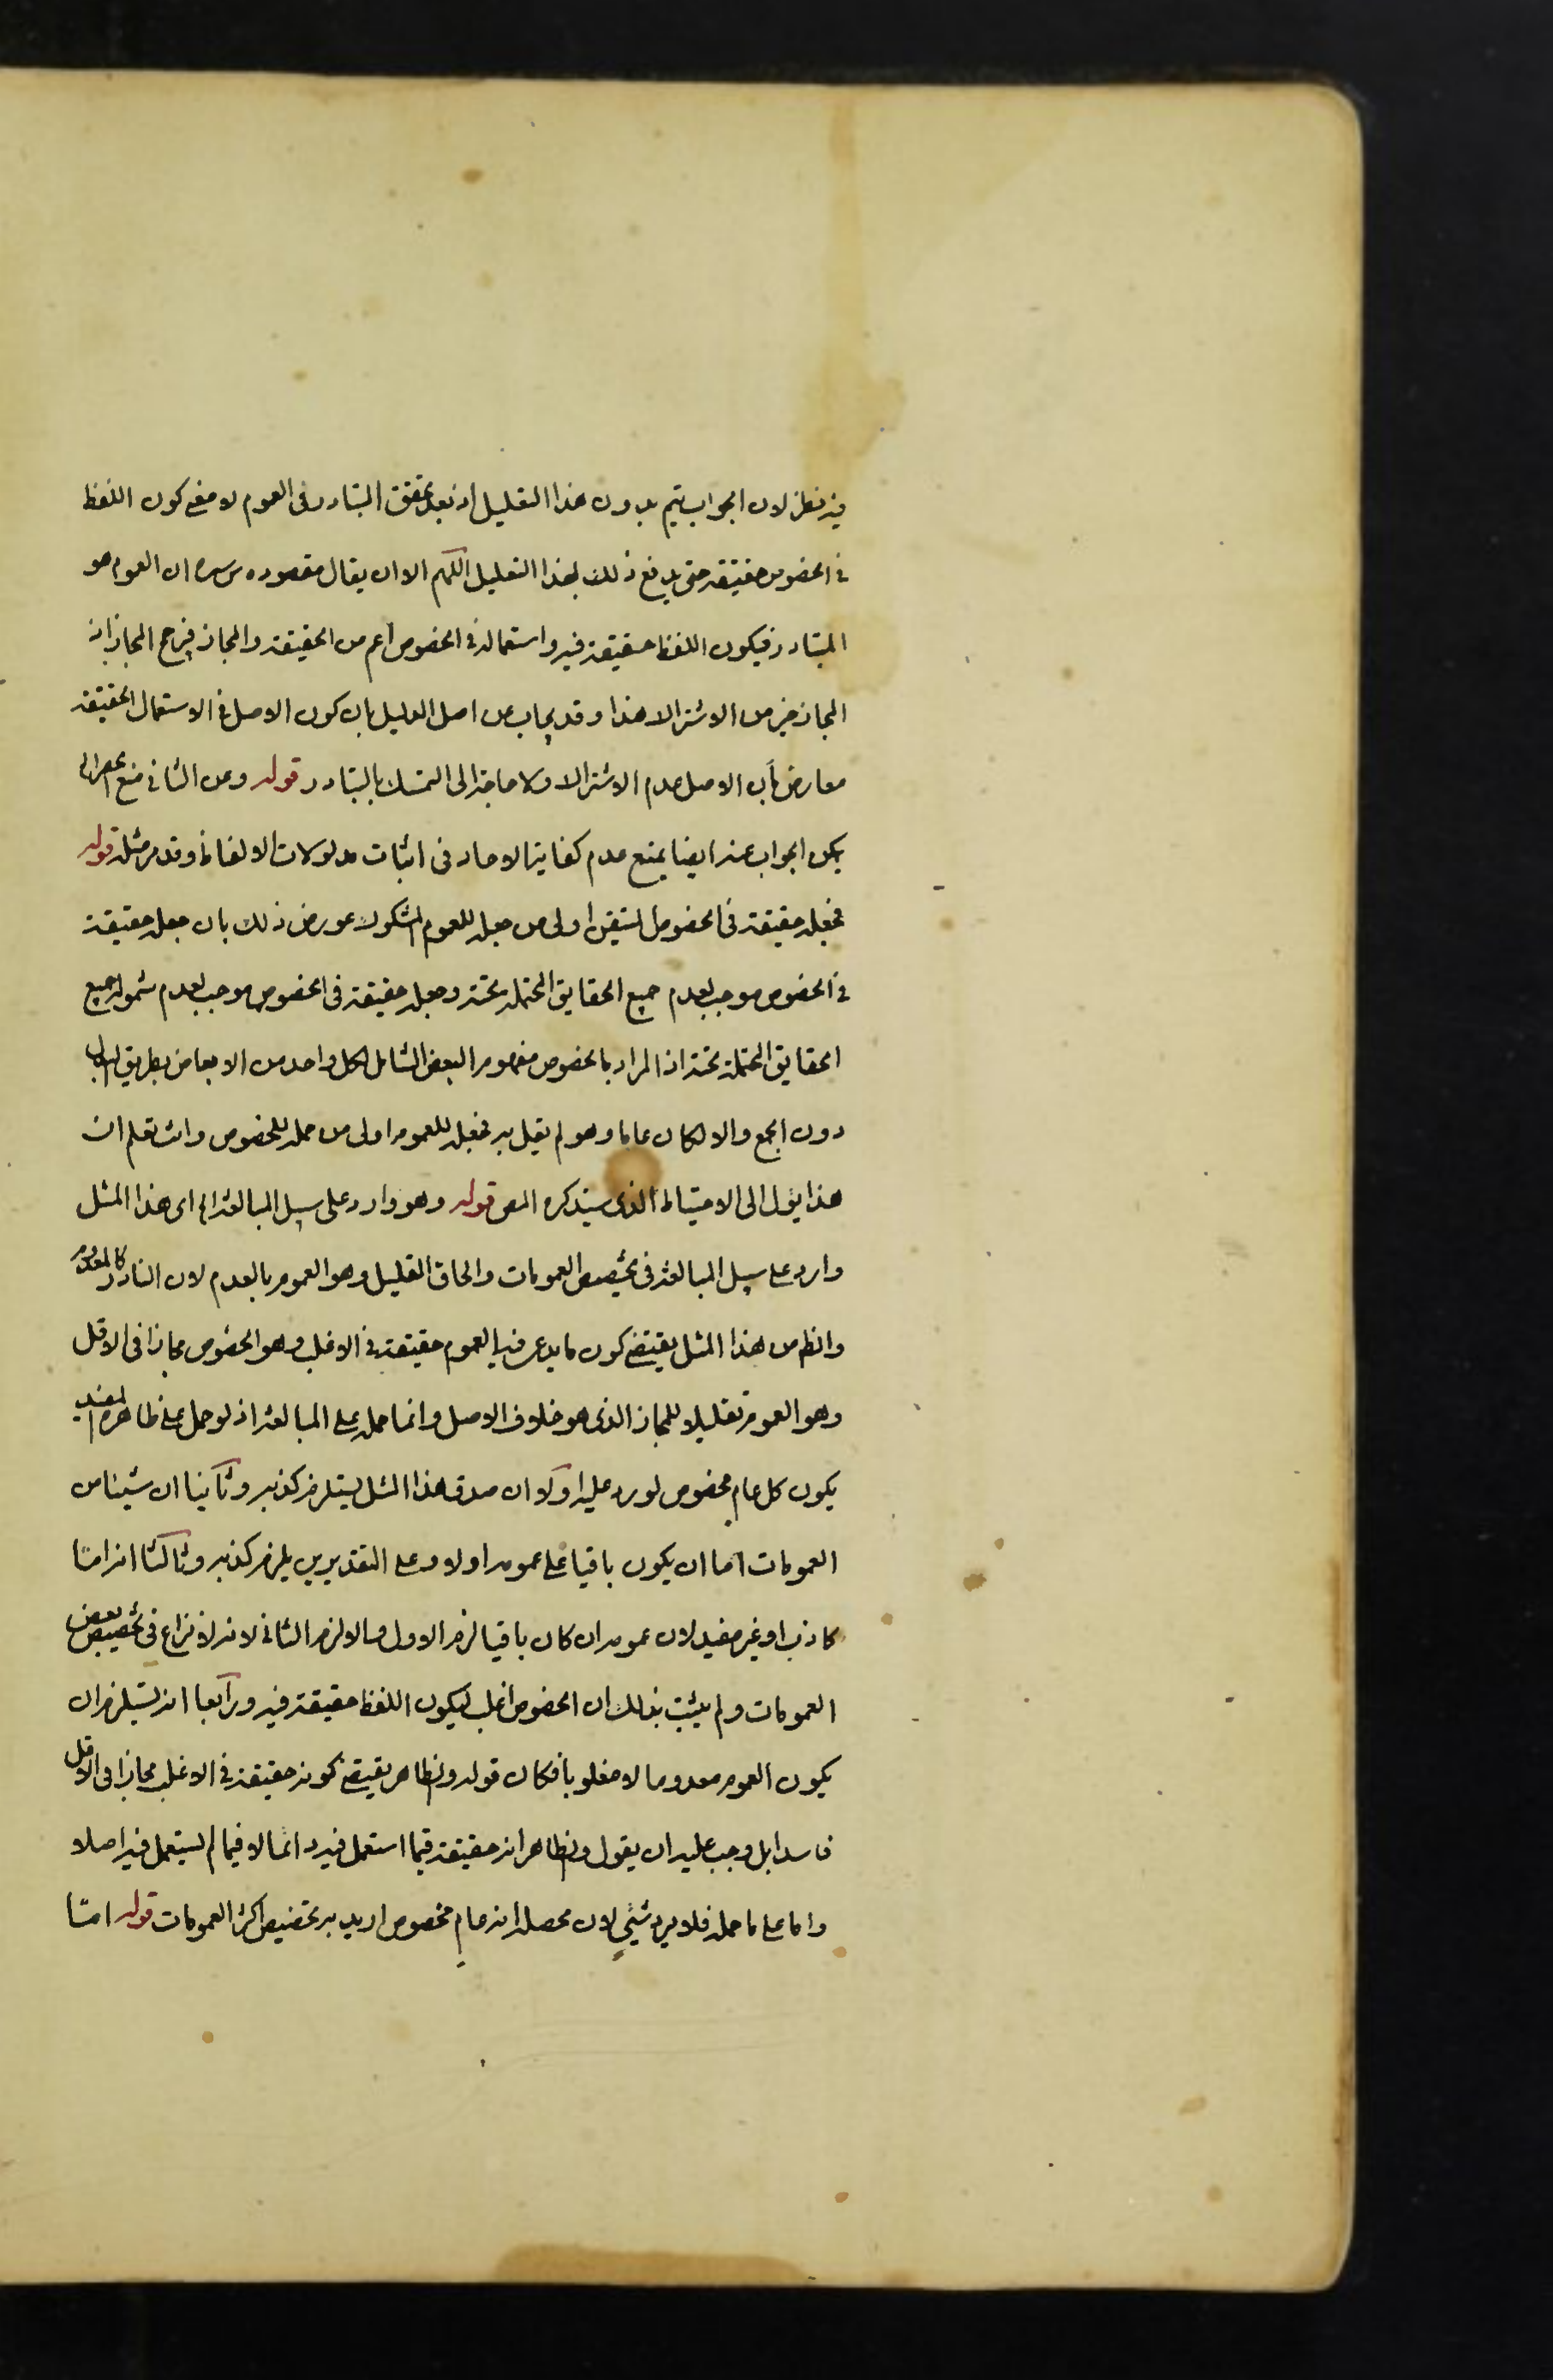 فيه نظر لان الجواب يتم بدون هذا التعليل اذ بعد تحقق التبادر فى العموم لا معنى لكون اللفظ
فى الخصوص حقيقة حتى يدفع ذلك بهذا التعليل اللهم الا ان يقال مقصوده س سره ان العموم هو
المتبادر فيكون اللفظ حقيقة فيه واستعماله فى الخصوص اعم من الحقيقة والمجاز فيرجح المجاز لان
المجاز خير من الاشتراك هذا وقد يجاب عن اصل الدليل بان كون الاصل فى الاستعمال الحقيقة
معارض بان الاصل عدم الاشتراك ولا حاجة الى التمسك بالتبادر قوله وعن الثانى منع الحصر اه
يمكن الجواب عنه ايضا بمنع عدم كفاية الاحاد فى اثبات مدلولات الالفاظ وقد مر مثله قوله
فجعله حقيقة فى الخصوص المتيقن اولى من جعله للعموم المشكوك عورض ذلك بان جعله حقيقة
فى الخصوص موجب لعدم جميع الحقايق المحتملة تحته وجعله حقيقة فى الخصوص موجب لعدم شموله لجميع
الحقايق المحتملة تحته اذ المراد بالخصوص مفهوم البعض الشامل لكل واحد من الابعاض بطريق البدل
دون الجمع والا لكان عاما وهو لم يقل به فجعله للعموم اولى من حمله للخصوص وانت تعلم ان
هذا يؤل الى الاحتياط الذى سيذكره المص قوله وهو وارد على سبيل المبالغة اه اى هذا المثل
وارد على سبيل المبالغة فى تخصيص العمومات والحاق القليل وهو العموم بالعدم لان النادر كالمعدوم
والظ من هذا المثل يقتضى كون ما يدعى فيه العموم حقيقة فى الاغلب وهو الخصوص مجازا فى الاقل
وهو العموم تقليلا للمجاز الذى هو خلاف الاصل وانما حمله على المبالغة اذ لو حمل على ظاهره المفيد
يكون كل عام مخصوص لورد عليه اولا ان صدق هذا المثل يستلزم كذبه وثانيا ان شيئا من
العمومات اما ان يكون باقيا على عمومه اولا وعلى التقديرين يلزم كذبه وثالثا انه اما
كاذب او غير مفيد لان عمومه ان كان باقيا لزم الاول والا لزم الثانى لانه لا نزاع فى تخصيص بعض
العمومات ولم يثبت بذلك ان الخصوص اغلب ليكون اللفظ حقيقة فيه ورابعا انه يستلزم ان
يكون العموم معدوما لا مغلوبا فكان قوله والظاهر يقتضى كونه حقيقة فى الاغلب مجازا فى الاقل
فاسدا بل وجب عليه ان يقول والظاهر انه حقيقة فيما استعمل فيه دائما لا فيما لم يستعمل فيه اصلا
واما على ما حمله فلا يرد شئى لان محصله انه عام مخصوص اريد به تخصيص اكثر العمومات قوله اما